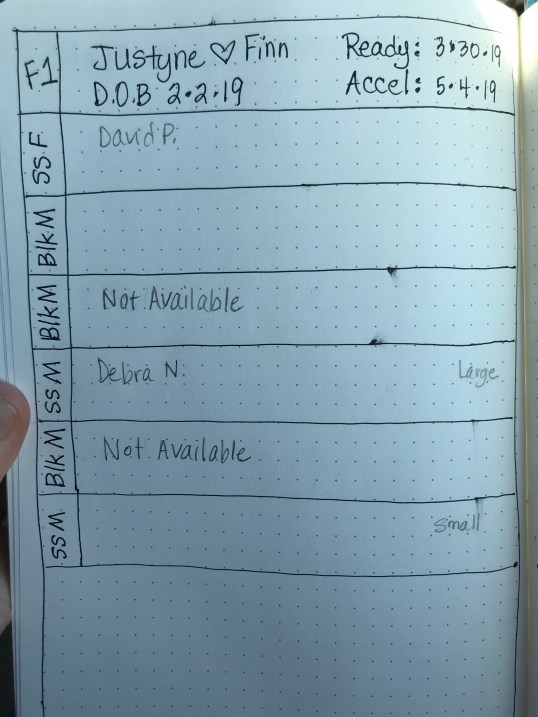 F1
Justyne ♡ Finn Ready: 3•30•19
D.O.B 2•2•19 Accel: 5•4•19
SS F David P.
Blk M
Blk M Not Available
SS M Debra N. Large
Blk M Not Available
SS M Small